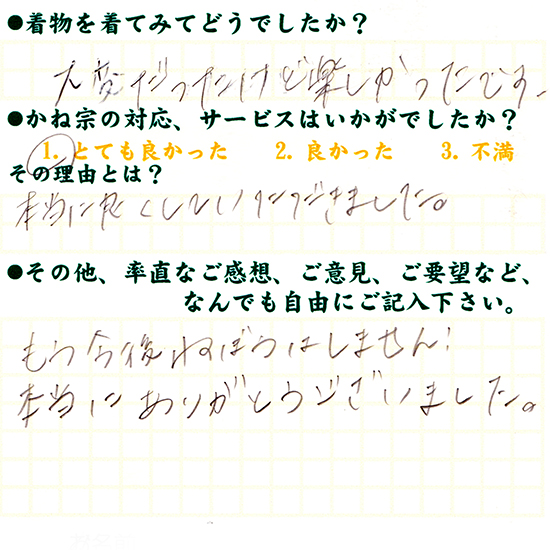 ●着物を着てみてどうでしたか？
大変だったけど楽しかったです。
●かね宗の対応、サービスはいかがでしたか？
1. とても良かった　2. 良かった　3. 不満
その理由とは？
本当に良くしていただきました。
●その他、率直なご感想、ご意見、ご要望など、
なんでも自由にご記入下さい。
もう今後ねぼうはしません！
本当にありがとうございました。